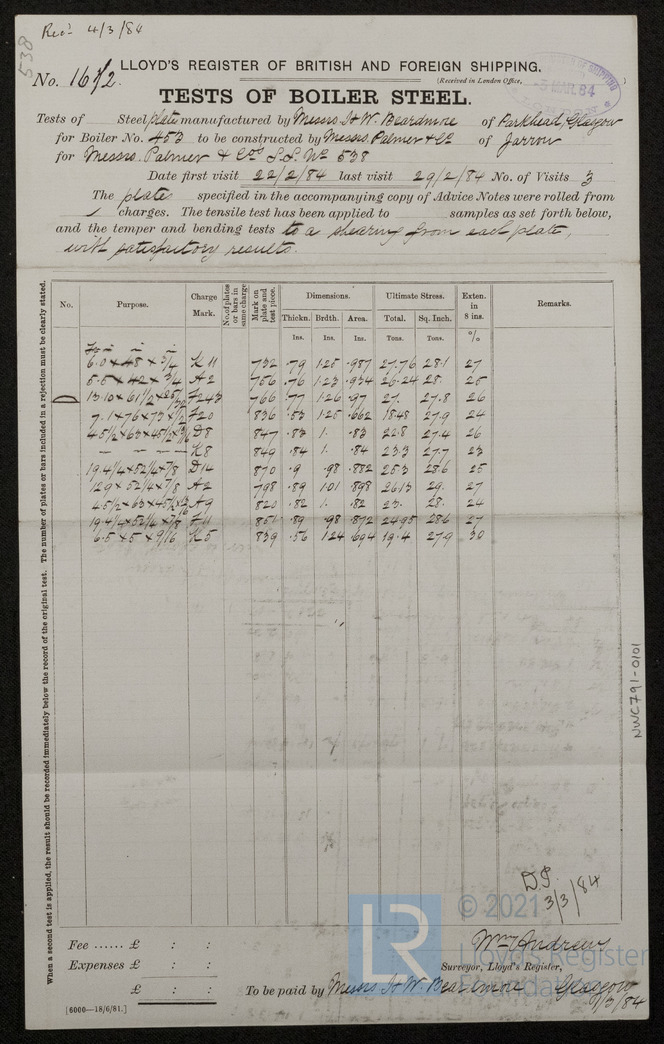 Rec'd 4/3/84
538
No. 1612. LLOYD'S REGISTER OF BRITISH AND FOREIGN SHIPPING.
(Received in London Office,
MAR. 84
TESTS OF BOILER STEEL.
Tests of Steel plate manufactured by Messrs I & W. Beardmore of Parkhead, Glasgow
for Boiler No. 453 to be constructed by Messrs. Palmer & Co of Jarrow
for Messrs. Palmer & Co's S.S. No 538
Date first visit 22/2/84 last visit 29/2/84 No. of Visits 3
The plates specified in the accompanying copy of Advice Notes were rolled from
charges. The tensile test has been applied to samples as set forth below,
and the temper and bending tests to a shearing from each plate,
with satisfactory results.
When a second test is applied, the result should be recorded immediately below the record of the original test. The number of plates or bars included in a rejection must be clearly stated.
No. Purpose. Charge Mark. No. of plates or bars in same charge Mark on plate and test piece. Dimensions. Ultimate Stress. Exten. in 8 ins. Remarks.
Thickn. Brdth. Area. Total. Sq. Inch.
Ins. Ins. Ins. Tons. Tons. %
6.0 × 48 × 3/4 K 11 732 .79 1.25 .987 27.76 28.1 27
5.5 × 42 × 3/4 A 2 756 .76 1.23 .934 26.24 28. 25
13.10 × 61 1/2 × 25/32 F243 766 .77 1.26 .97 27. 27.8 26
7.1 × 76 × 73 × 1/2 F20 836 .53 1.25 .662 18.48 27.9 24
D8 847 .83 1. .83 22.8 27.4 26
— — — — K8 849 .84 1. .84 23.3 27.7 23
19.4 1/4 × 52 1/4 × 7/8 D14 870 .9 .98 .882 25.3 28.6 25
12.9 × 52 1/4 × 7/8 A2 798 .89 1.01 .898 26.13 29. 27
A9 820 .82 1. .82 23. 28. 24
19.4 1/4 × 52 1/4 × 7/8 F11 851 .89 .98 .872 24.95 28.6 27
6.5 × 5 × 9/16 K5 839 .56 1.24 .694 19.4 27.9 30
NWC791-0101
3/3/84
© 2021
LR
Lloyd's Register
Foundation
Fee ...... £ : :
Expenses £ : :
£ : :
Wm Andrews
Surveyor, Lloyd's Register,
To be paid by Messrs I & W. Beardmore Glasgow
1/3/84
[6000—18/6/81.]